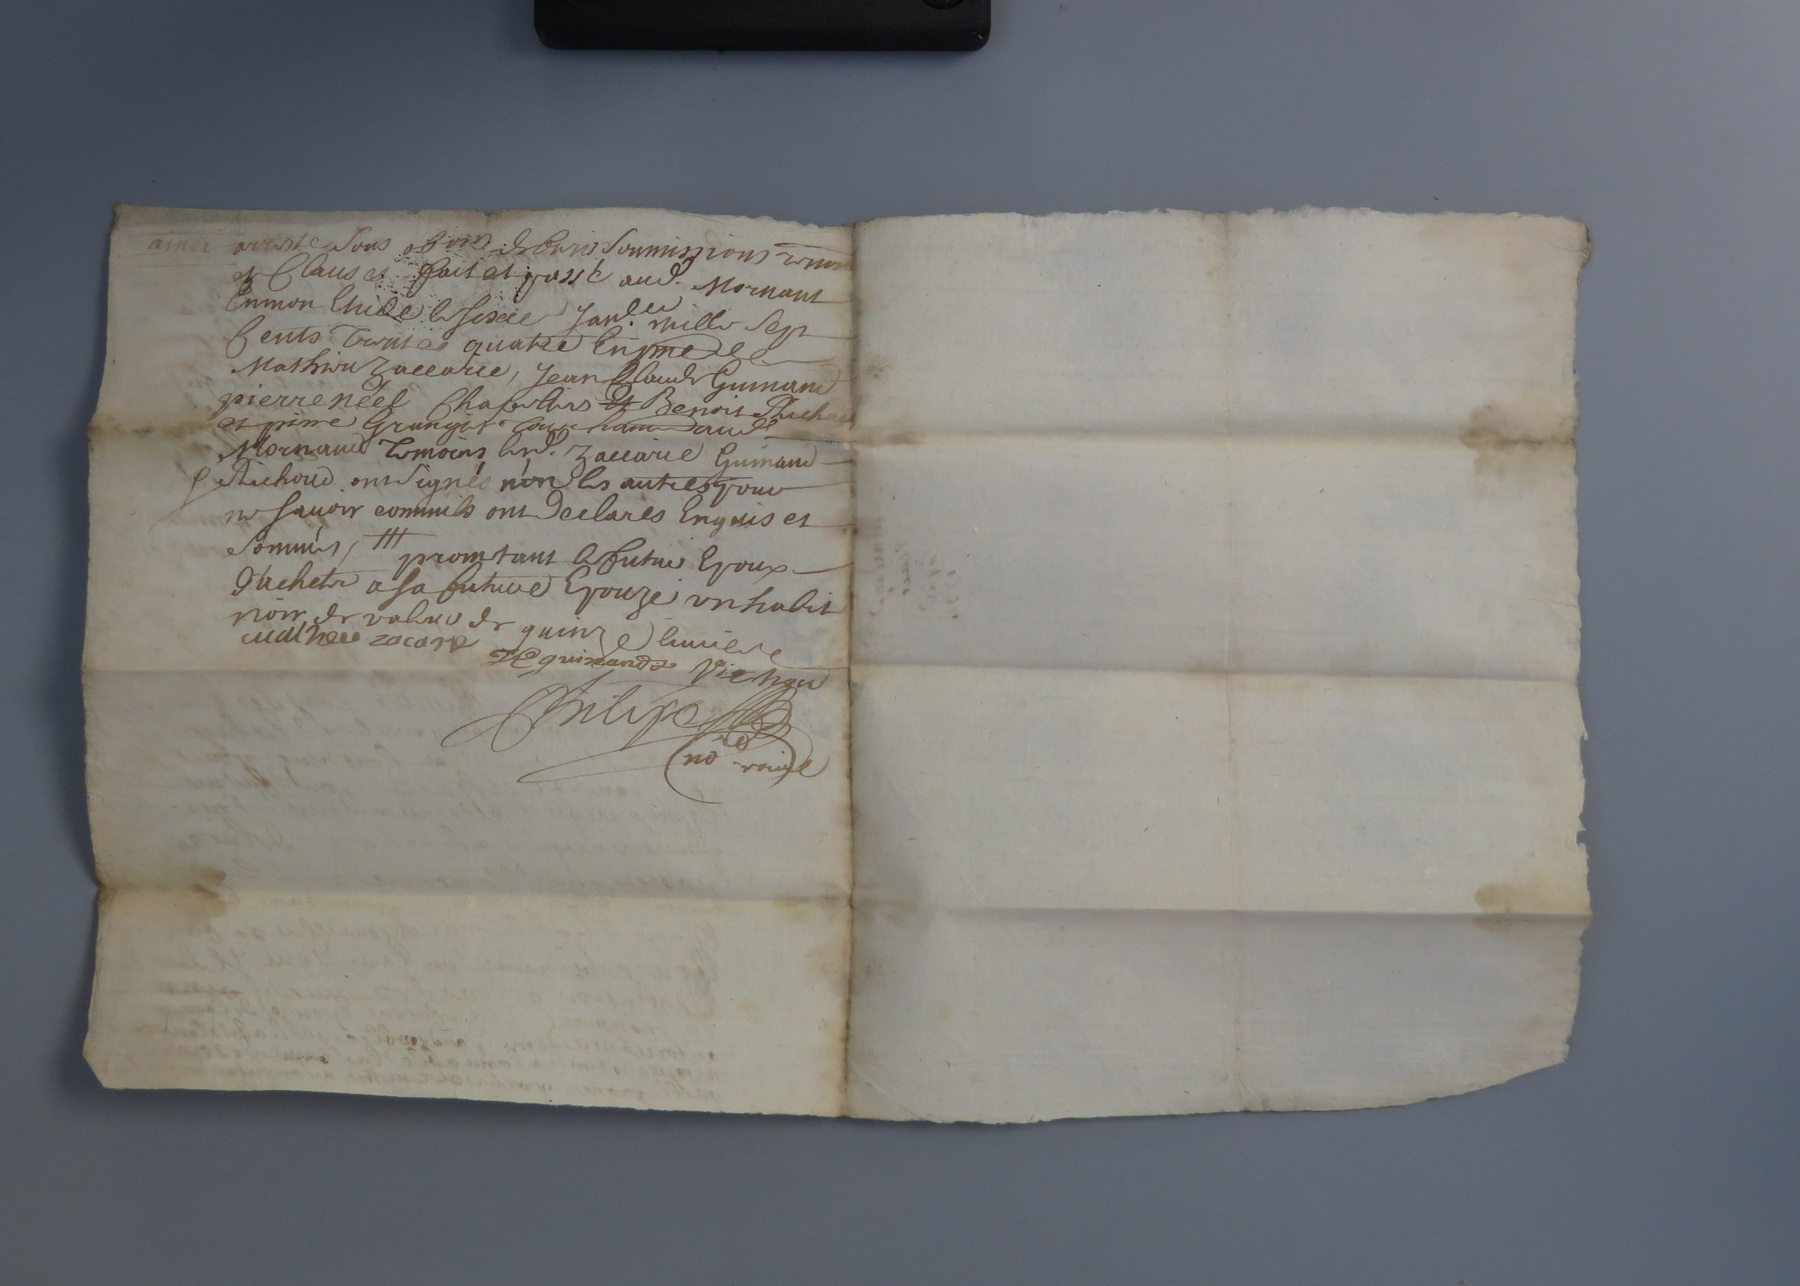 arreste sous obom de biens soumissions renon
et Clauses fait et passé aud. Mornant
En mon Etude le seize Janer. mille sept
Cents Trente quatre En pnce de
Mathieu Zaccarie, Jean Claude Guinand
pierre néel Chapelliers Benoit Richoud
et pierre Grangier
Mornand Temoins led. Zaccarie Guinand
Richoud ont Signés non les autres pour
ne savoir comm'ils ont Declarés Enquis et
Sommés, promtant le futur Epoux
d'acheter a sa future Epouze un habit
noir de valeur de quinze livres
mathieu zacarie
guinand Richoud
Philipe
no re roial